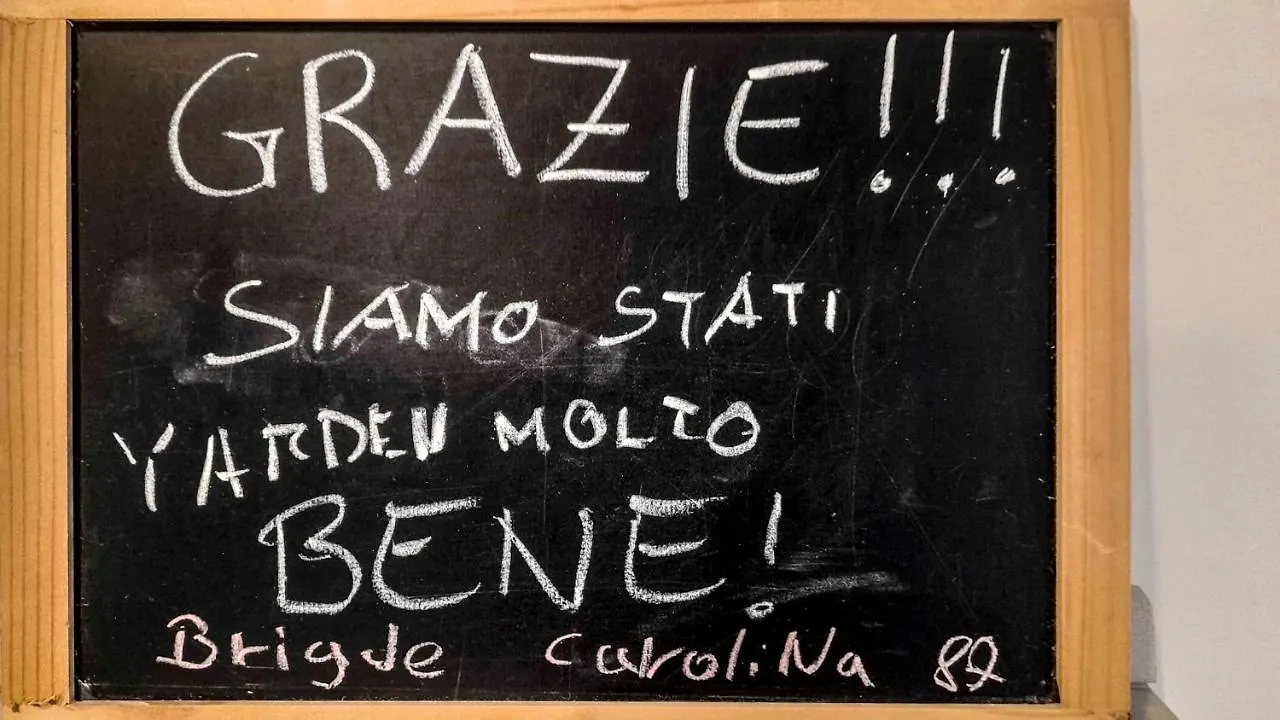 GRAZIE!!!
SIAMO STATI
YARDEN MOLTO
BENE!
Carolina